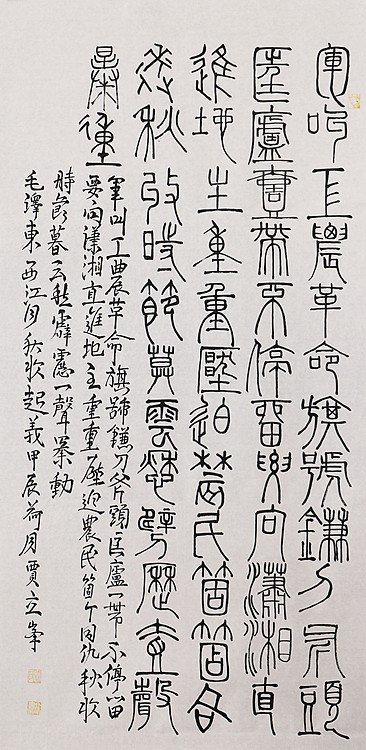 軍叫工農革命旗號鎌刀斧頭
匡廬壹帶不停留要向瀟湘直
進地主重重壓迫農民箇箇同
仇秋收時節莫雲愁霹歷壹聲
暴動
軍叫工農革命旗號鎌刀斧頭匡廬一帶不停留
要向瀟湘直進地主重重壓迫農民箇个同仇秋收
時節暮云愁霹靂一聲暴動
毛澤東西江月秋收起義甲辰荷月賈立峯